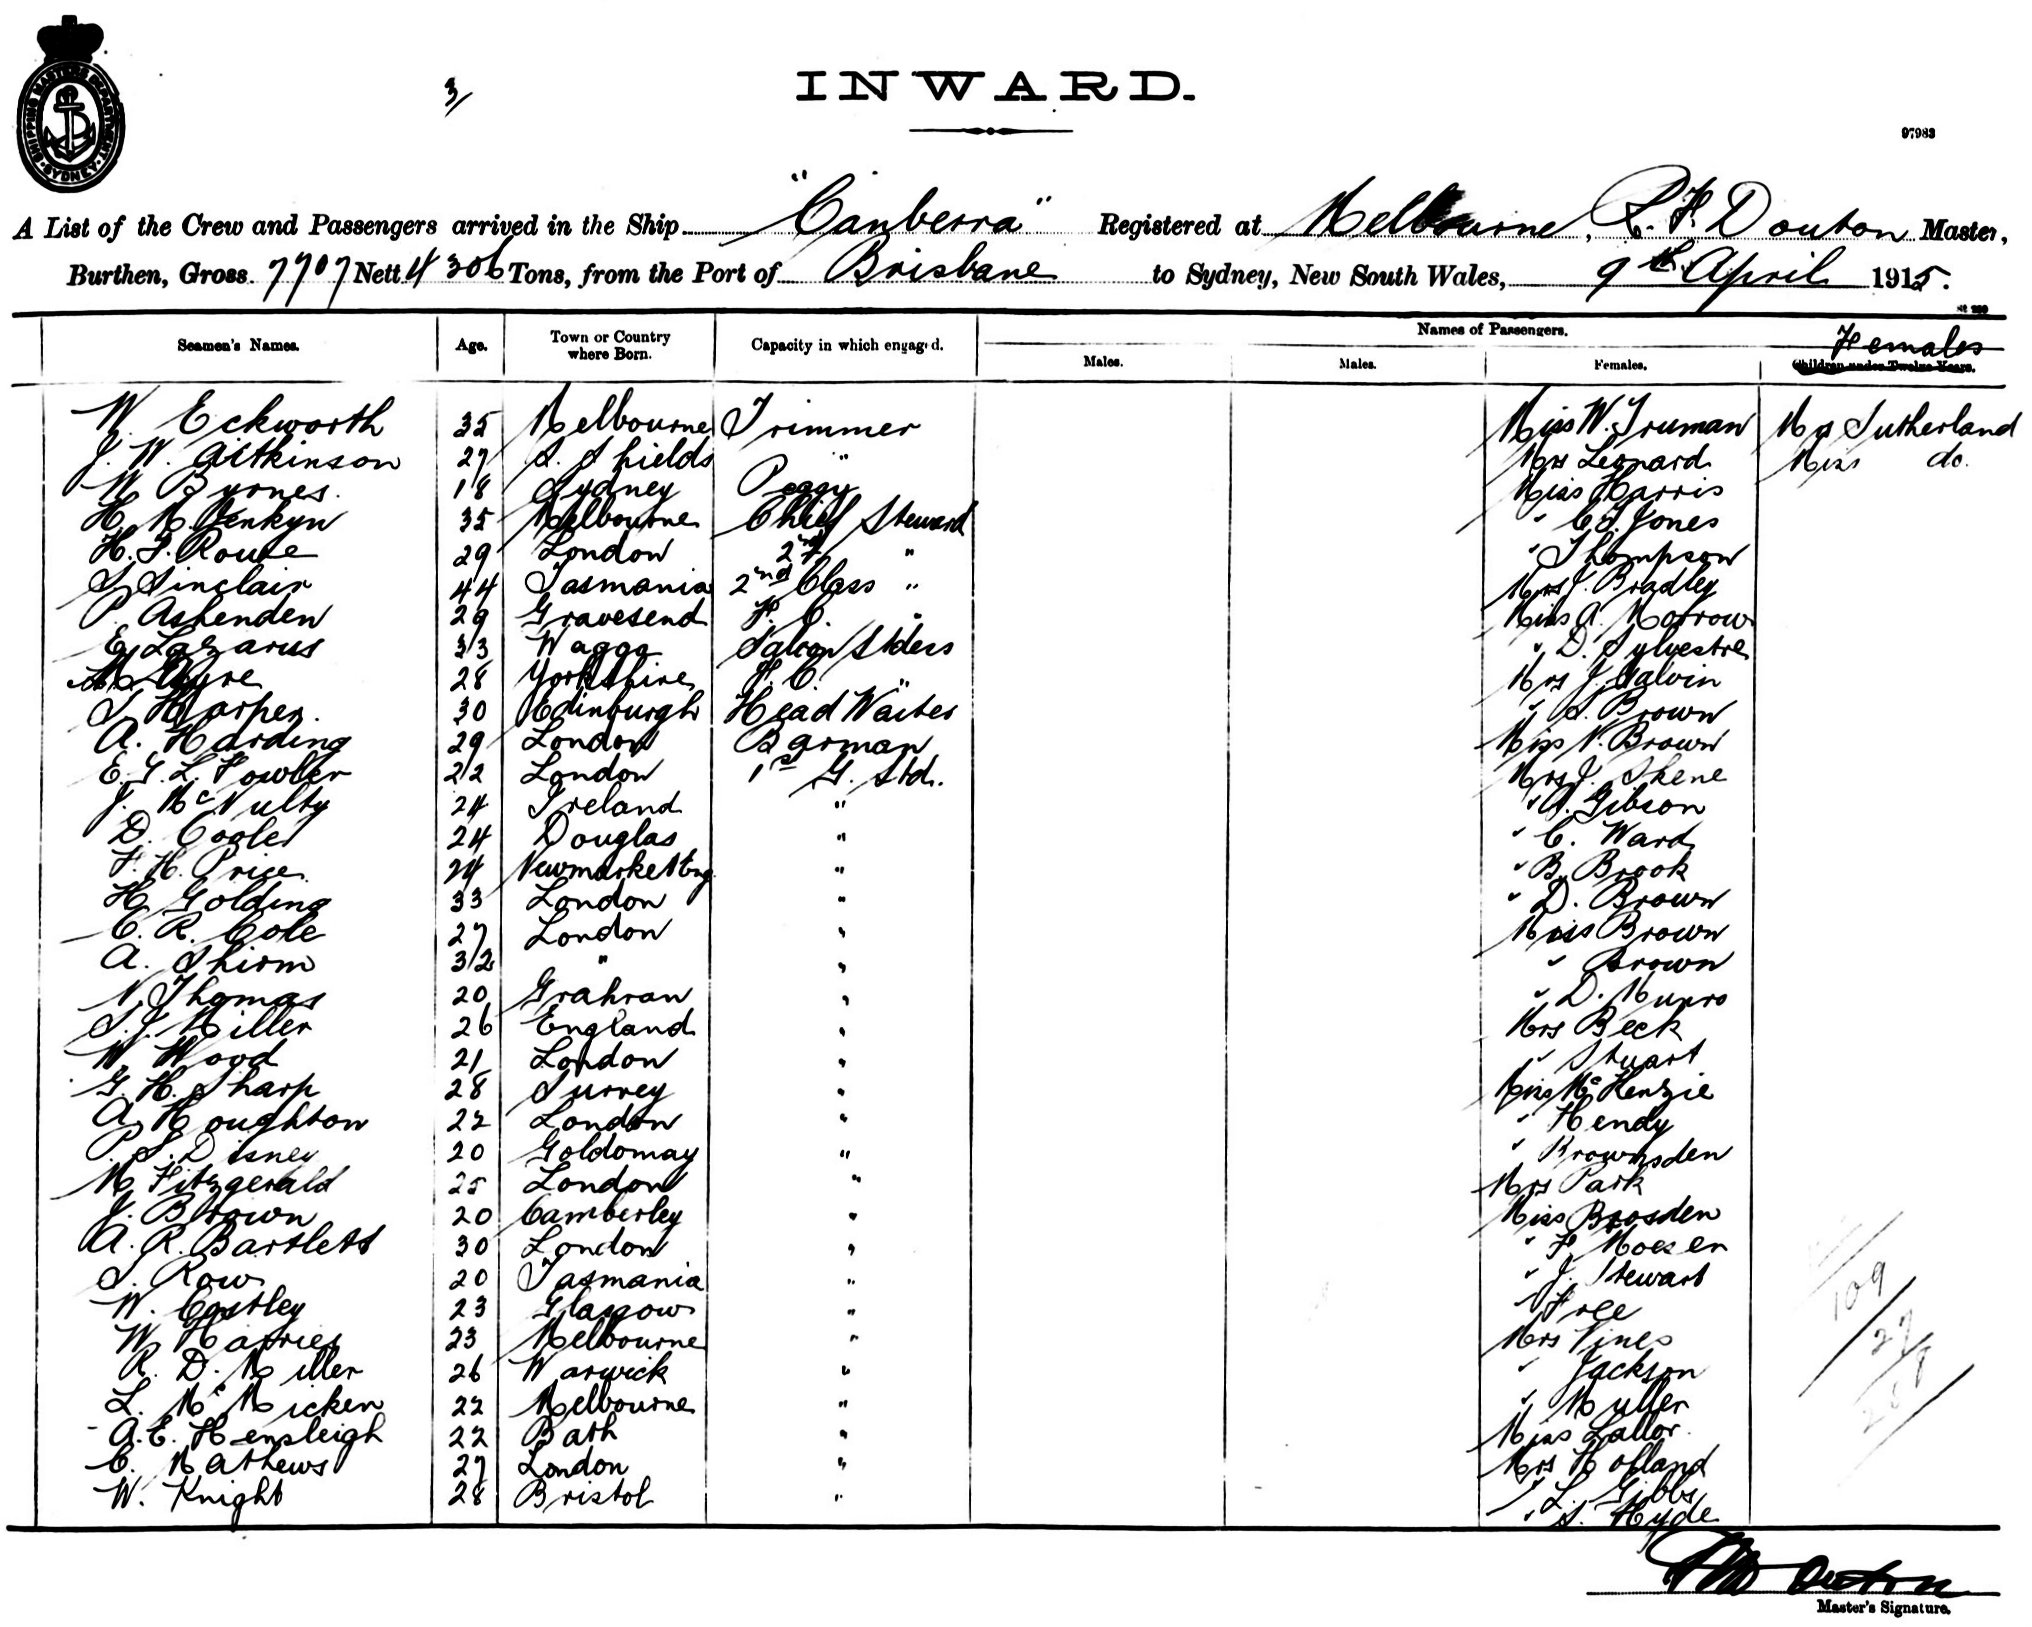 3/
INWARD.
97983
SHIPPING MASTERS DEPARTMENT SYDNEY
A List of the Crew and Passengers arrived in the Ship "Canberra" Registered at Melbourne, R. F. Douton Master,
Burthen, Gross 7707 Nett 4306 Tons, from the Port of Brisbane to Sydney, New South Wales, 9th April 1915.
Seamen's Names. Age. Town or Country where Born. Capacity in which engaged. Names of Passengers.
Males. Males. Females. Females Children under Twelve Years.
W. Eckworth 35 Melbourne Trimmer Miss W. Truman Mrs Sutherland
J. W. Aitkinson 27 S. Shields " Mrs Leonard Miss do.
W Byrnes 18 Sydney Peggy Miss Harris
H. M. Jenkyn 35 Melbourne Chief Steward " C. J. Jones
H. J. Rouse 29 London 2nd " " Thompson
S Sinclair 44 Tasmania 2nd Class " Mrs J. Bradley
P. Ashenden 29 Gravesend F. C. " Miss A. Morrow
E. Lazarus 33 Wagga Saloon Stdess " D. Sylvestre
Ayre 28 Yorkshire F. C. " Mrs J. Galvin
S Harper. 30 Edinburgh Head Waiter " S. Brown
A. Harding 29 London Barman Miss N. Brown
E. G. L. Fowler 22 London 1st G. Std. Mrs J. Skene
J. McNulty 24 Ireland " " A. Gibson
D. Cogler 24 Douglas " " C. Ward
F. H. Price 24 Newmarket Eng " " B. Brook
H Golding 33 London " " D. Brown
C. R. Cole 27 London " Miss Brown
A. Shirm 32 " " " Brown
N. Thomas 20 Grahran " " D. Munro
S. J. Miller 26 England " Mrs Beck
W Wood 21 London " " Stuart
G. H. Sharp 28 Surrey " Miss McKenzie
A. Houghton 22 London " " Hendy
P. S. Disney 20 Goldomay " " Brownsden
M Fitzgerald 25 London " Mrs Park
J. Brown 20 Camberley " Miss Brosden
A. R. Bartlett 30 London " " F. Moesen
S. Row 20 Tasmania " " J. Stewart
W. Costley 23 Glasgow " " Free
W Harries 23 Melbourne " Mrs Vines
R. D. Miller 26 Warwick " " Jackson
L. McMicken 22 Melbourne " " Muller
A. E. Hensleigh 22 Bath " Miss Lallor
C. Mathews 27 London " Mrs Holland
W. Knight 28 Bristol " " L. Gibbs
" S. Hyde
109
27
Master's Signature.